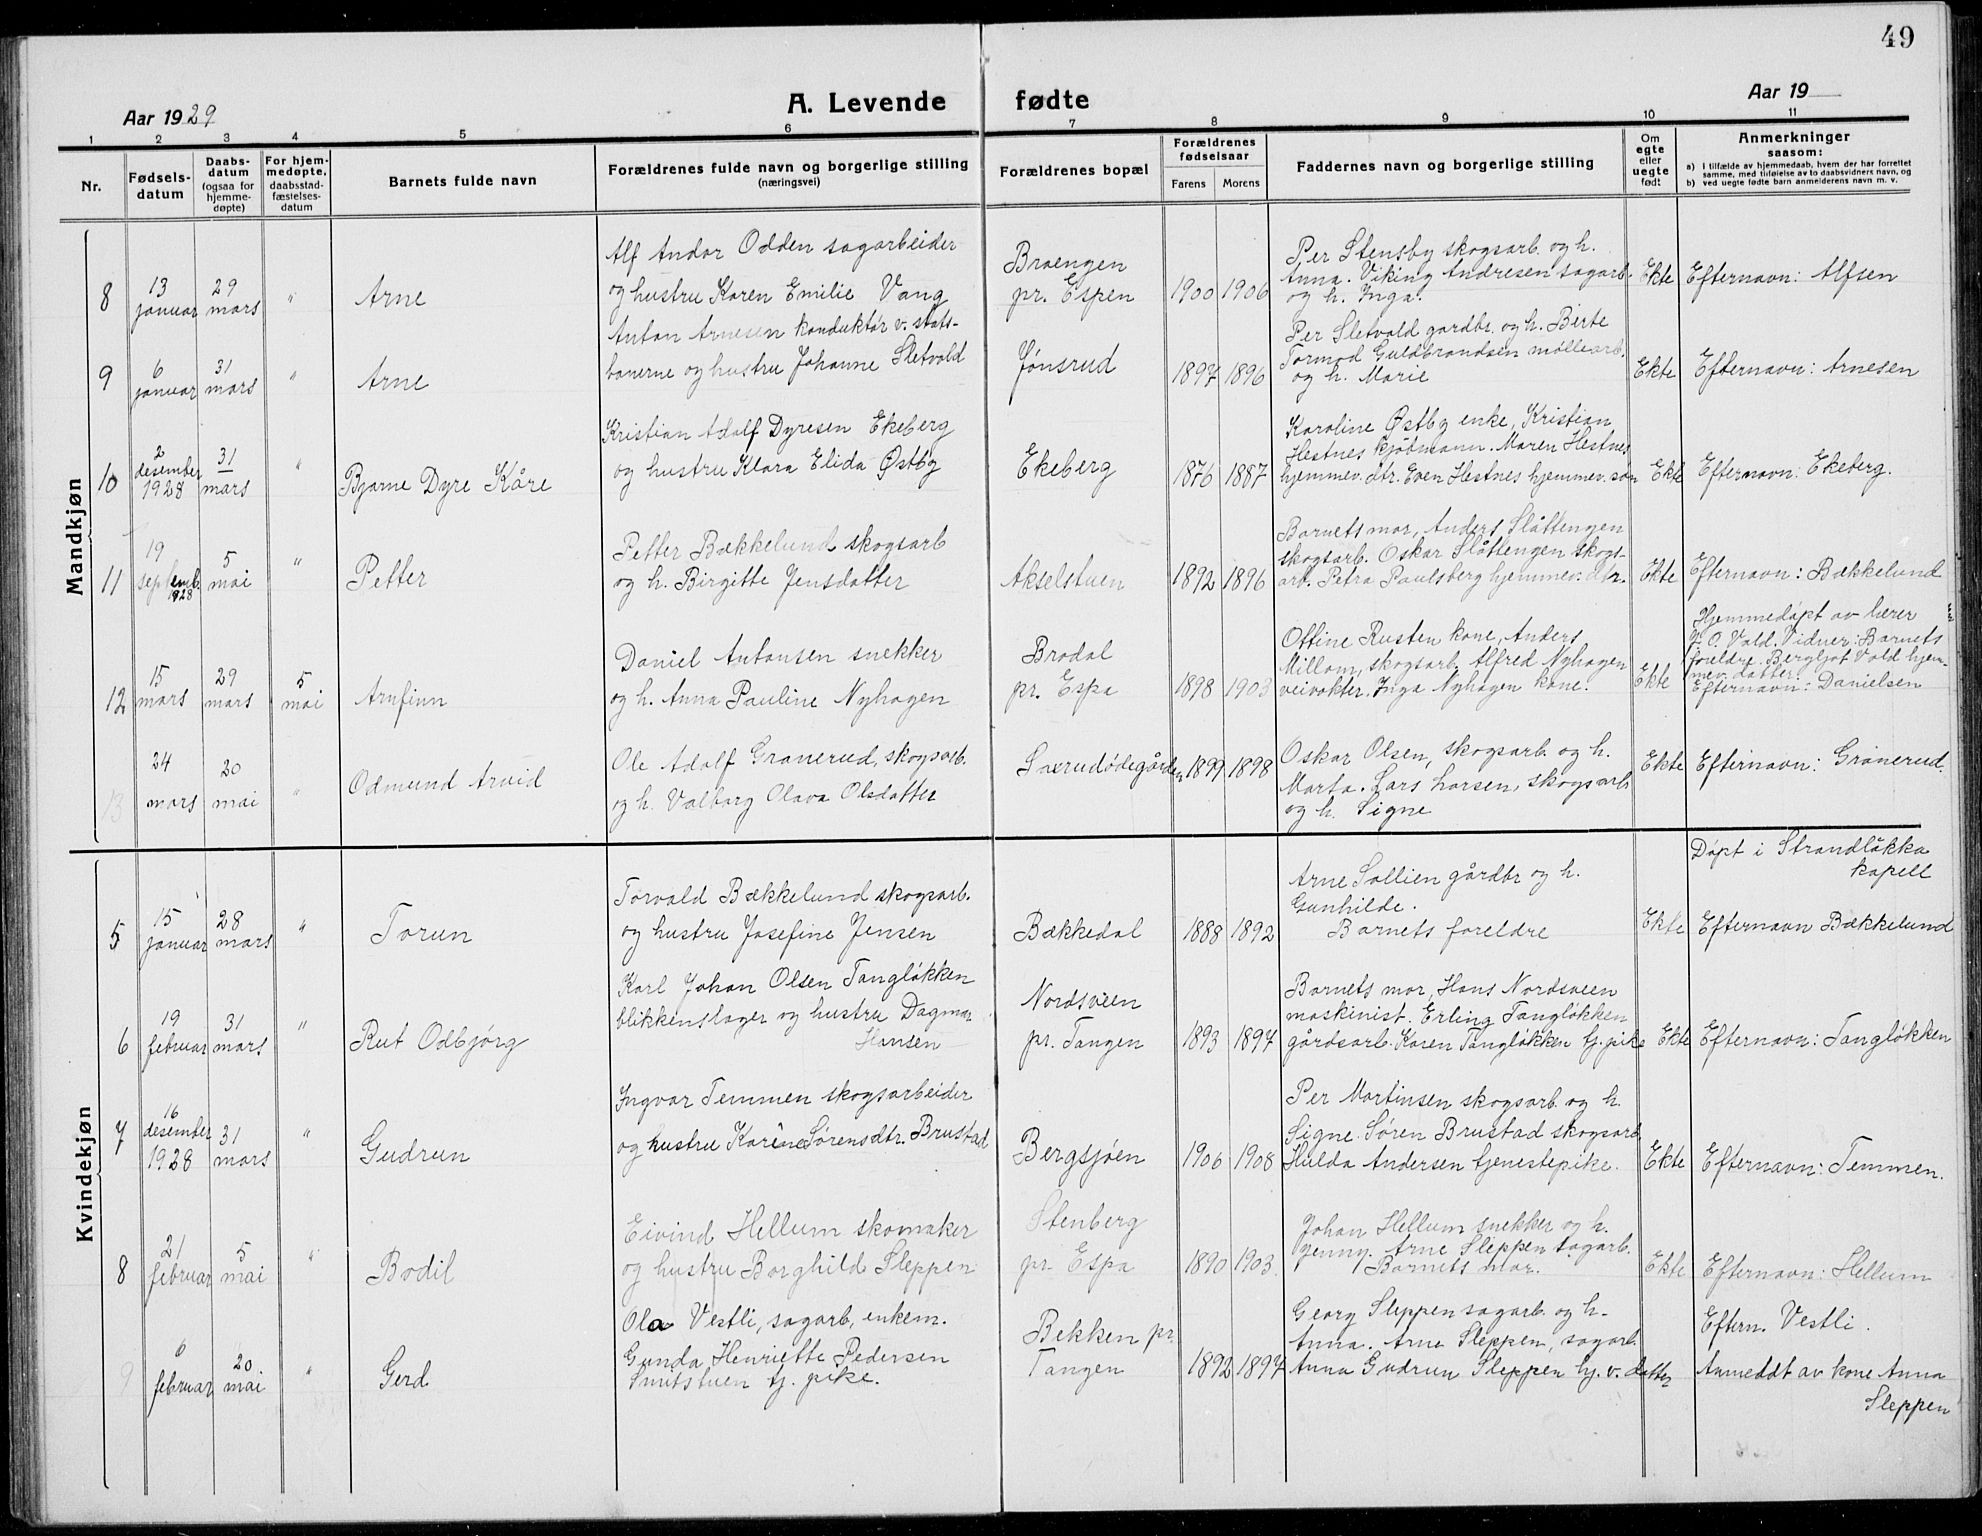 49
Aar 1929
A. Levende fødte
Aar 19
1 2 3 4 5 6 7 8 9 10 11
Nr.
Fødselsdatum
Daabsdatum (ogsaa for hjemmedøpte)
For hjemmedøpte, daabsstadfæstelsesdatum
Barnets fulde navn
Forældrenes fulde navn og borgerlige stilling
(næringsvei)
Forældrenes bopæl
Forældrenes fødselsaar
Farens Morens
Faddernes navn og borgerlige stilling
Om egte eller uegte født
Anmerkninger
saasom:
a) I tilfælde av hjemmedaab, hvem der har forrettet samme, med tilføielse av to daabsvidners navn, og
b) ved uegte fødte barn anmelderens navn m. v.
Mandkjøn
8
13 januar
29 mars
"
Arne
Alf Andor Odden sagarbeider
og hustru Karen Emilie Vang
Braengen
pr. Espen
1900 1906
Per Stensby skogsarb. og h.
Anna. Viking Andresen sagarb.
og h. Inga.
Ekte
Efternavn: Alfsen
9
6 januar
31 mars
"
Arne
Anton Arnesen konduktør v. stats-
banerne og hustru Johanne Sletvold
Jønsrud
1897 1896
Per Sletvold gardbr. og h. Berte
Tormod Guldbrandsen møllearb.
og h. Marie
Ekte
Efternavn: Arnesen
10
2 desember 1928
31 mars
"
Bjarne Dyre Kåre
Kristian Adolf Dyresen Ekeberg
og hustru Klara Elida Østby
Ekeberg
1876 1887
Karoline Østby enke, Kristian
Hestnes kjøbmann. Maren Hestnes
hjemmev. dtr. Even Hestnes hjemmev. søn
Ekte
Efternavn: Ekeberg.
11
19 septemb. 1928
5 mai
"
Petter
Petter Bækkelund skogsarb
og h. Birgitte Jensdatter
Akselstuen
1892 1896
Barnets mor, Anders Slåttengen
skogsarb. Oskar Slåttengen skogs-
arb. Petra Paulsberg hjemmev. dtr.
Ekte
Efternavn: Bækkelund
12
15 mars
29 mars
5 mai
Arnfinn
Daniel Antonsen snekker
og h. Anna Pauline Nyhagen
Brodal
pr. Espa
1898 1903
Ottine Rusten kone, Anders
Millom, skogsarb. Alfred Nyhagen
veivokter. Inga Nyhagen kone.
Ekte
Hjemmedøpt av lærer
O. Vald. Vidner: Barnets
foreldre. Bergljot Vald hjem-
mev. datter.
Efternavn: Danielsen
13
24 mars
20 mai
"
Odmund Arvid
Ole Adolf Granerud, skogsarb.
og h. Valborg Olava Olsdatter
Særudødegården
1899 1898
Oskar Olsen, skogsarb. og h.
Marta. Lars Larsen, skogsarb
og h. Signe
Ekte
Efternavn: Granerud.
Kvindekjøn
5
15 januar
28 mars
"
Torun
Torvald Bækkelund skogsarb.
og hustru Josefine Jensen
Bækkedal
1888 1892
Arne Sollien gårdbr og h.
Gunhilde.
Barnets foreldre
Ekte
Døpt i Strandløkka
kapell
Efternavn Bækkelund
6
19 februar
31 mars
"
Rut Odbjørg
Karl Johan Olsen Tangløkken
blikkenslager og hustru Dagmar
Hansen
Nordsveen
pr. Tangen
1893 1897
Barnets mor, Hans Nordsveen
maskinist. Erling Tangløkken
gårdsarb. Karen Tangløkken tj. pike
Ekte
Efternavn: Tangløkken
7
16 desember 1928
31 mars
"
Gudrun
Ingvar Temmen skogsarbeider
og hustru Karine Sørensdtr. Brustad
Bergsjøen
1906 1908
Per Martinsen skogsarb. og h.
Signe. Søren Brustad skogsarb.
Hulda Andersen tjenestepike.
Ekte
Efternavn: Temmen.
8
21 februar
5 mai
"
Bodil
Eivind Hellum skomaker
og hustru Borghild Sleppen
Stenberg
pr. Espa
1890 1903.
Johan Hellum snekker og h.
Jenny. Arne Sleppen sagarb.
Barnets mor.
Ekte
Efternavn: Hellum
9
6 februar
20 mai
"
Gerd
Ola Vestli, sagarb, enkem.
Gunda Henriette Pedersen
Snitstuen tj. pike.
Bekken pr.
Tangen
1892 1897
Georg Sleppen sagarb. og h.
Anna. Arne Sleppen, sagarb.
Anna Gudrun Sleppen hj. v. datter
Eftern. Vestli.
Anmeldt av kone Anna
Sleppen